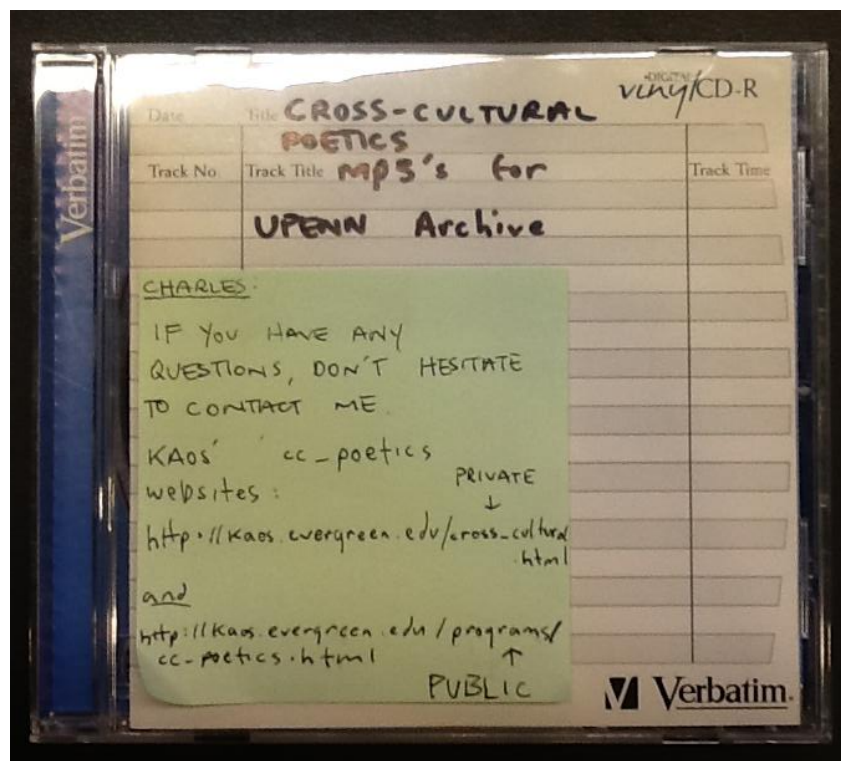 Verbatim
DIGITAL
vinyl CD-R
Date Title CROSS-CULTURAL
POETICS
Track No. Track Title MP3's for Track Time
UPENN Archive
CHARLES:
IF YOU HAVE ANY
QUESTIONS, DON'T HESITATE
TO CONTACT ME.
KAOS' cc_poetics
websites:
PRIVATE
↓
http://kaos.evergreen.edu/cross_cultural
.html
and
http://kaos.evergreen.edu/programs/
cc-poetics.html ↑
PUBLIC
Verbatim.